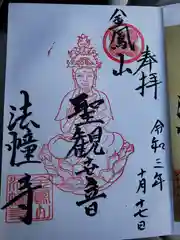 奉拝
令和三年
十月十七日
金鳳山
聖観世音
法幢寺